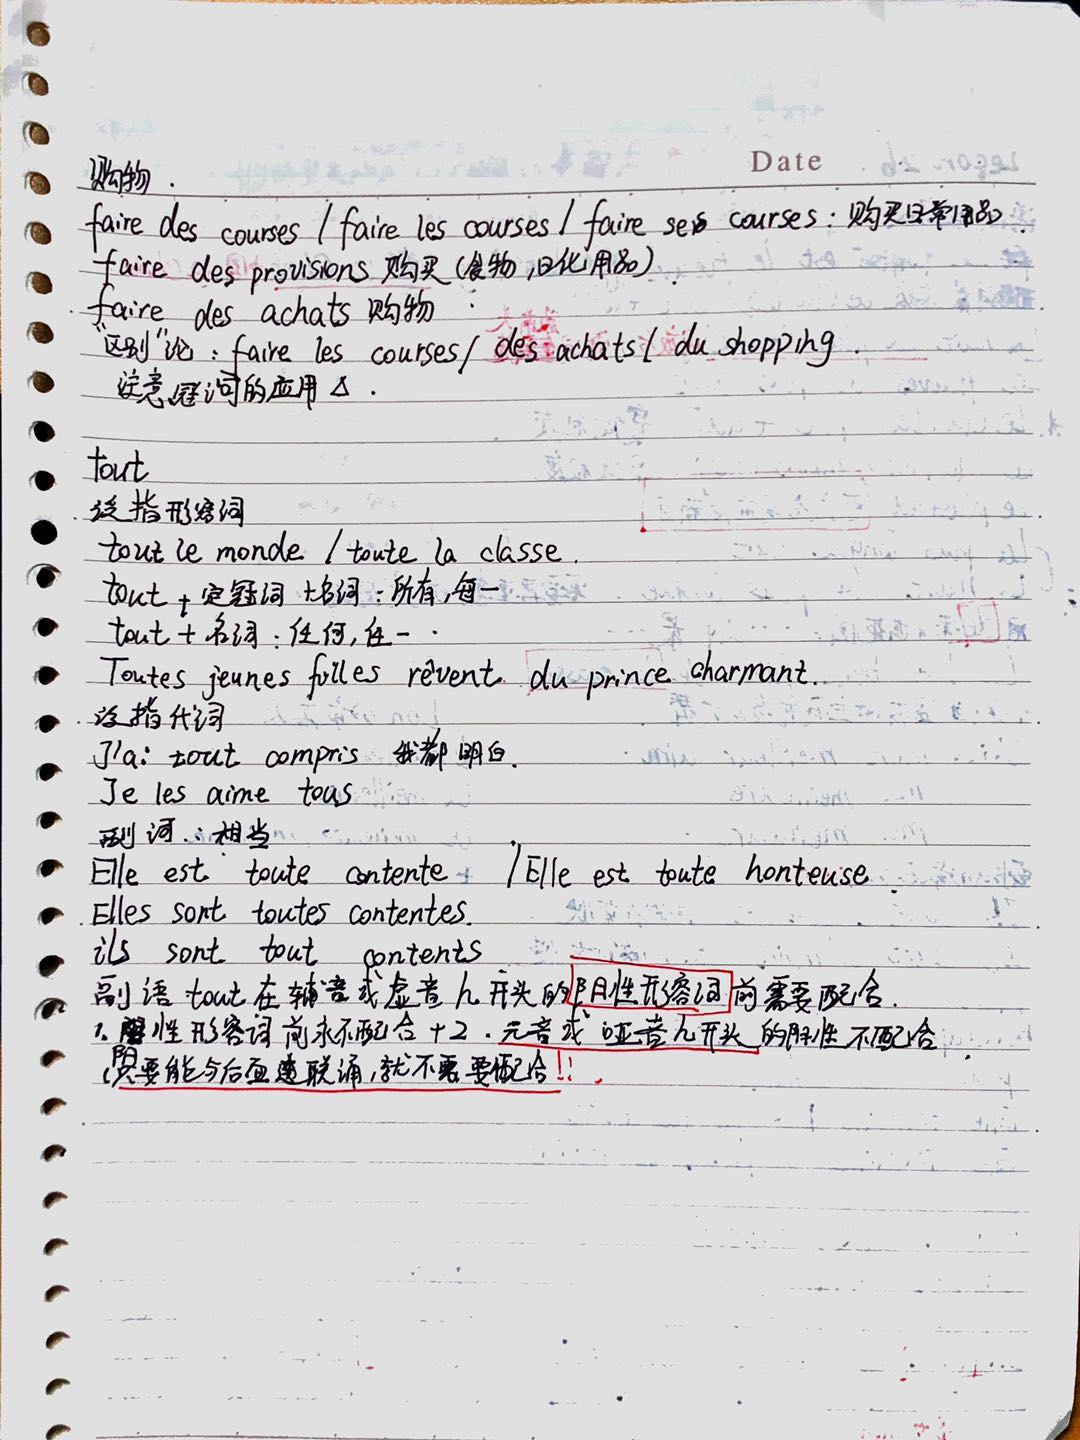 Date
购物.
faire des courses / faire les courses / faire ses courses : 购买日常用品
faire des provisions 购买(食物,日化用品).
faire des achats 购物
"区别"论 : faire les courses / des achats / du shopping.
注意冠词的应用 △.
tout
泛指形容词
tout le monde / toute la classe.
tout + 定冠词 + 名词 : 所有,每一
tout + 名词 : 任何,任一.
Toutes jeunes filles rêvent du prince charmant.
泛指代词
J'ai tout compris 我都明白.
Je les aime tous
副词 : 相当
Elle est toute contente / Elle est toute honteuse.
Elles sont toutes contentes.
ils sont tout contents
副语 tout 在辅音或虚音 h 开头的阴性形容词前需要配合.
1. 阳性形容词前永不配合 + 2. 元音或哑音 h 开头的阴性不配合.
只要能与后面连联诵,就不需要配合!!.